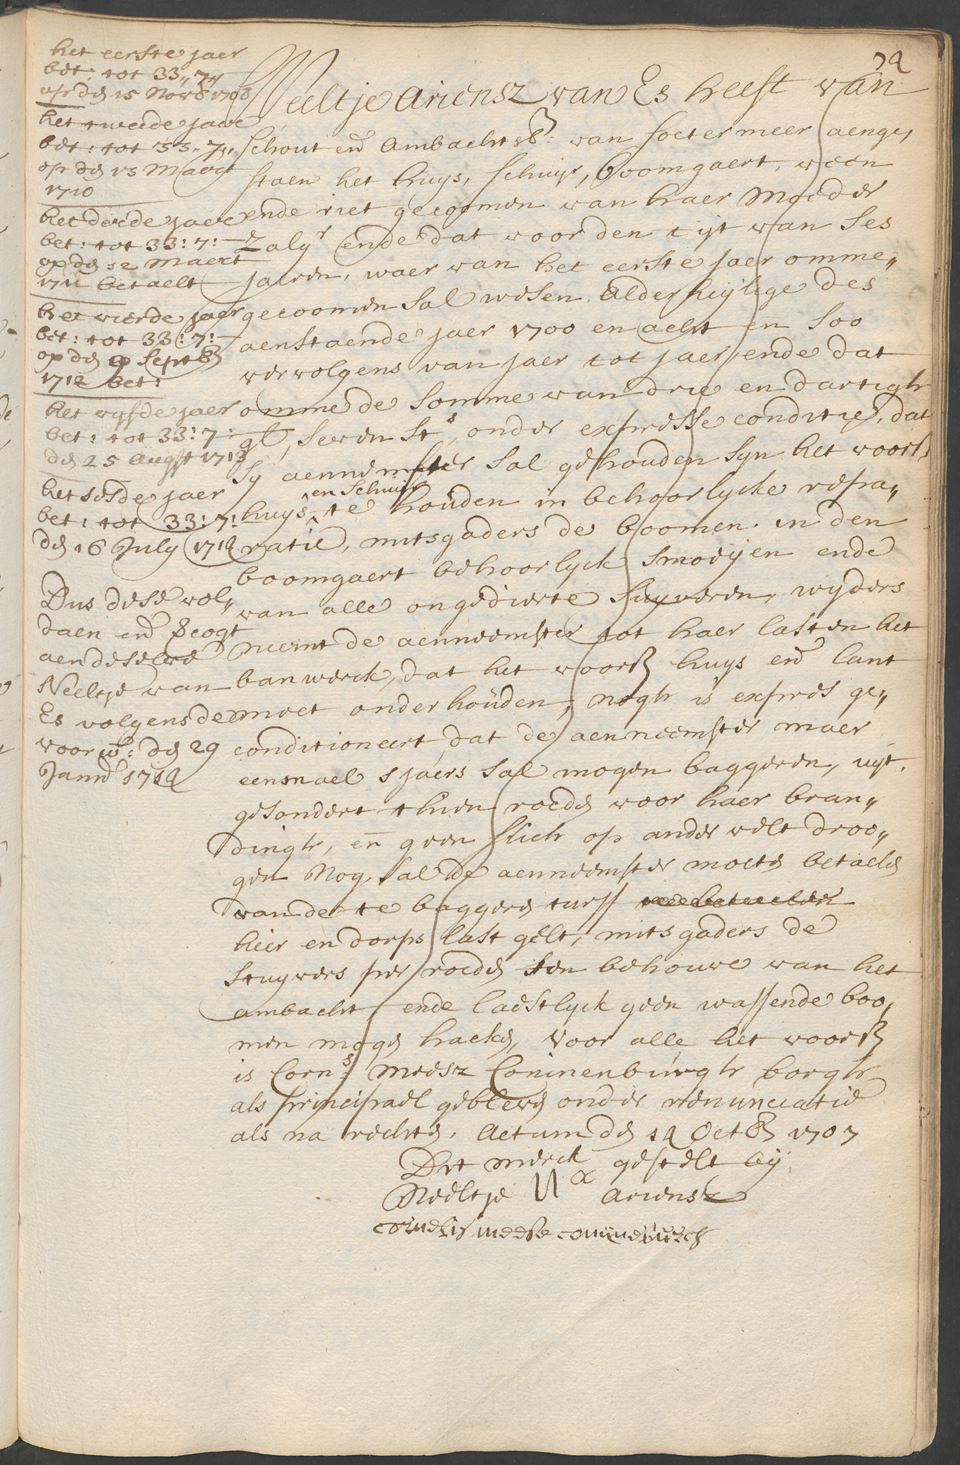 74
het eerste jaer
bet: tot 33,, 7,,
op den 15 Novb 1708
het tweede jaer
bet: tot 33-7,,
op den 15 Maert
1710
het derde jaer
bet: tot 33:7:-
op den 12 Maert
1711 betaelt
het vierde jaer
bet: tot 33:7:-
op den 9 Septb
1712 bet:
het vijfde jaer
bet: tot 33:7:
den 25 Augst 1713
het sesde jaer
bet: tot 33:7:
den 16 July 1714
Dus dese vol,,
daen end geogt
aen deselve
Neeltje van
Es volgens de
voorw: den 29
Jannd 1714
Neeltje Ariensz van Es heeft van
Schout end Ambachtsb. van Soetermeer aenge,,
staen het huys, schuyr, boomgaert, w
ende riet gecoomen van haer Moeder
zalgr ende dat voor den tijt van ses
jaeren, waer van het eerste jaer omme,,
gecoomen sal wesen Alderheylige des
aenstaende jaer 1700 en acht en soo
vervolgens van jaer tot jaer, ende dat
omme de somme van drie en dartigh
gl, seven sts, onder expresse conditie, dat
sy aenneemster sal gehouden syn het voors
huys en schuijr te houden in behoorlycke repa,,
ratie, mitsgaders de boomen in den
boomgaert behoorlyck Smoeijen ende
van alle ongedierte suyveren, wyders
neemt de aenneemster tot haer lasten het
banwerck, dat het voors huys end lant
moet onderhouden, nogh is expres ge,,
conditioneert dat de aenneemster maer
eensmael sjaers sal mogen baggeren, uijt,
gesondert thien roeden voor haer bran,,
dingh, en geen slich op ander velt droo,,
gen Nog sal de aenneemster moeten betaelen
van de te baggeren turff
hier en dorps last gelt, mitsgaders de
stuyvers per roeden ten behouve van het
ambacht, ende laestlyck geen wassende boo,,
men mogen hacken, Voor alle het voors
is Corns Meesz Coninenburgh borgh
als principael gebleven onder renunciatie
als na rechten. Actum den 14 Octb 1707
Dit merck gestelt by
Neeltje Ariensz
cornelis meese coninenburch